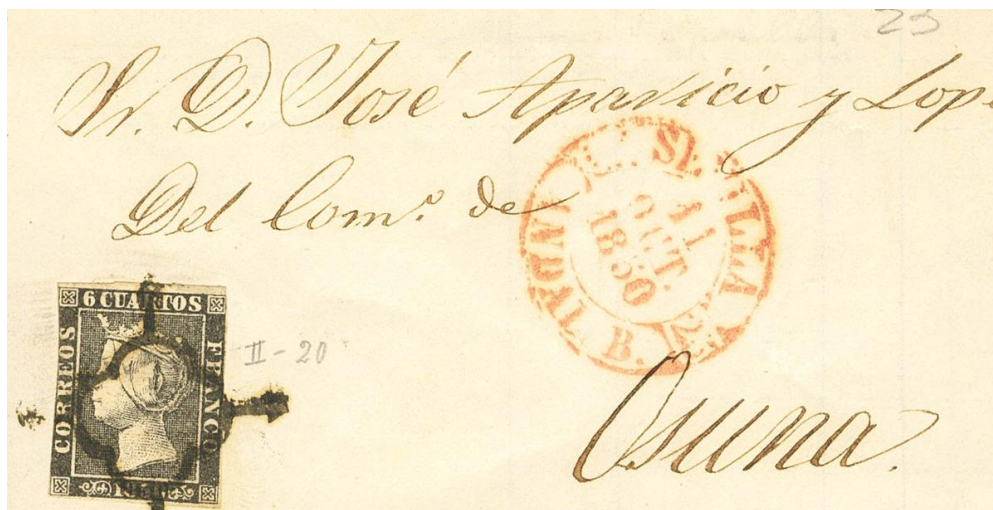 23
Sr. D. José Aparicio y Lop
Del Com.º de
SEVILLA
11
OCT.
1850
ANDAL. B.
6 CUARTOS
CORREOS
FRANCO
1850
II - 20
Osuna.